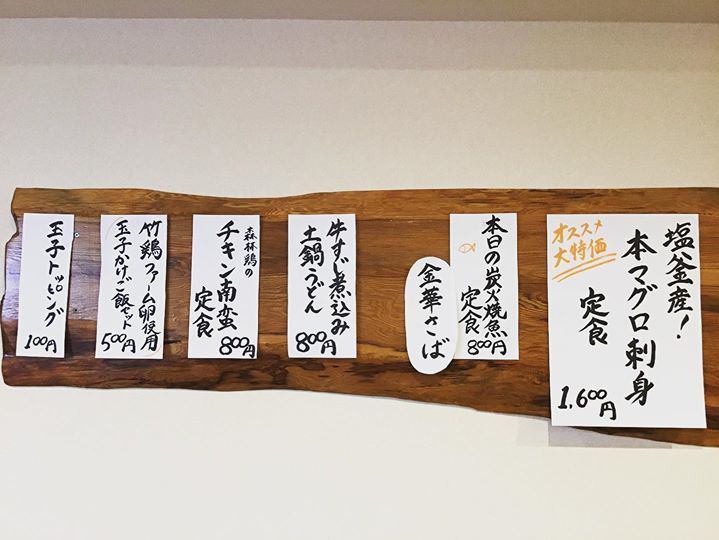 塩釜産!
本マグロ刺身
定食
1,600円
オススメ
大特価
本日の炭火焼魚
定食
800円
金華さば
牛すじ煮込み
土鍋うどん
800円
森林鶏の
チキン南蛮
定食
800円
竹鶏ファーム卵使用
玉子かけご飯セット
500円
玉子トッピング
100円